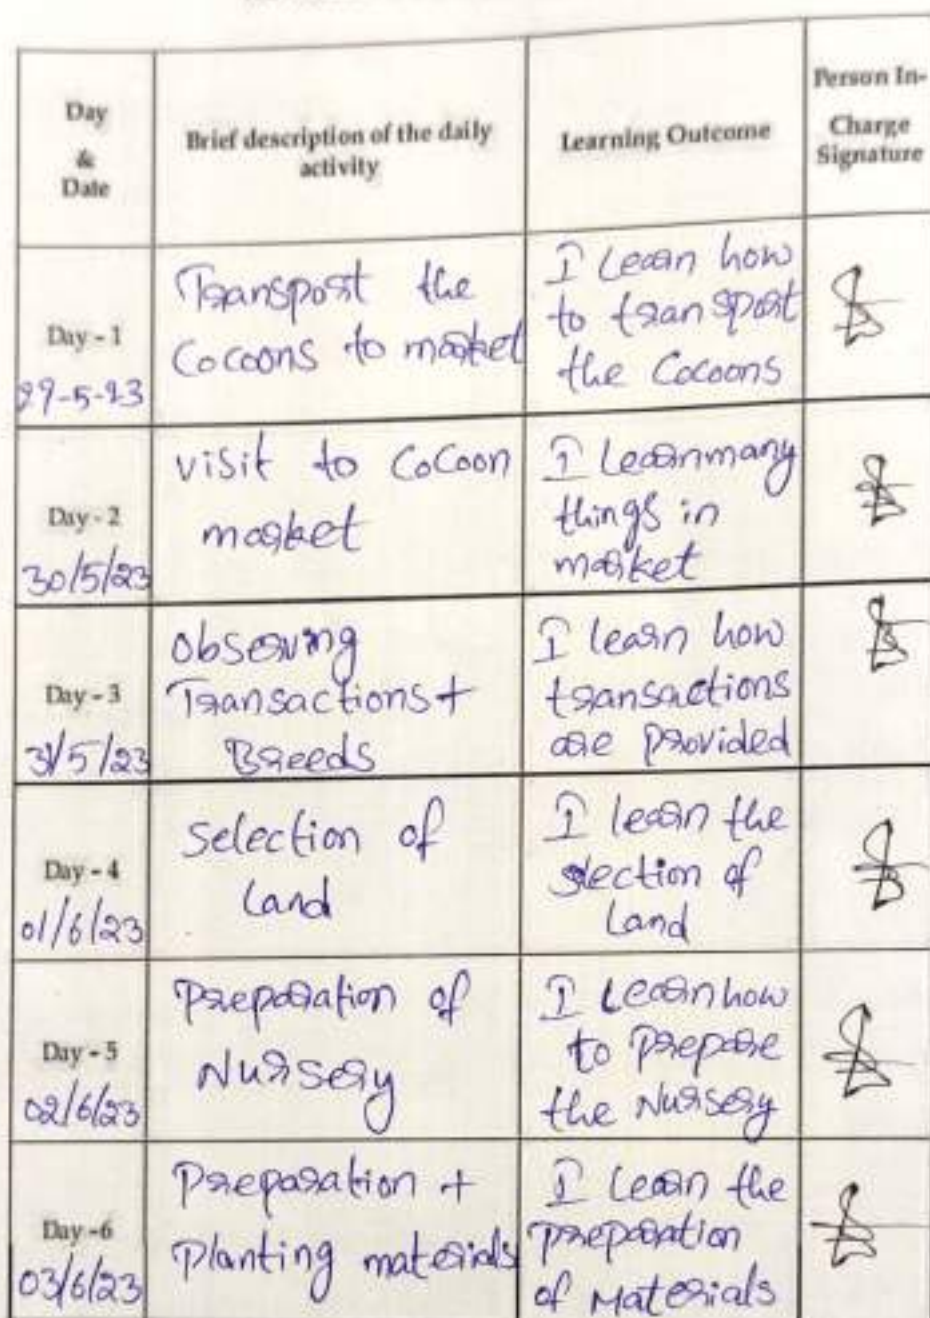 Day
&
Date
Brief description of the daily
activity
Learning Outcome
Person In-
Charge
Signature
Day - 1
29-5-23
Transport the
Cocoons to market
I Learn how
to transport
the Cocoons
Day - 2
30/5/23
visit to CoCoon
market
I Learn many
things in
market
Day - 3
31/5/23
Observing
Transactions +
Breeds
I learn how
transactions
are provided
Day - 4
01/6/23
Selection of
Land
I learn the
selection of
Land
Day - 5
02/6/23
Preparation of
Nursery
I Learn how
to prepare
the Nursery
Day -6
03/6/23
Preparation +
Planting materials
I Learn the
preparation
of Materials